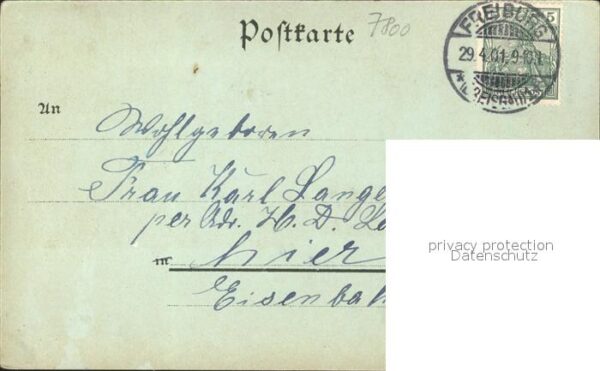 Postkarte 7800
FREIBURG
29.4.01.9-10.V
An
Wohlgeboren
Frau Karl Lange
per Adr. H. D. Le
in hier
Eisenbah
privacy protection
Datenschutz